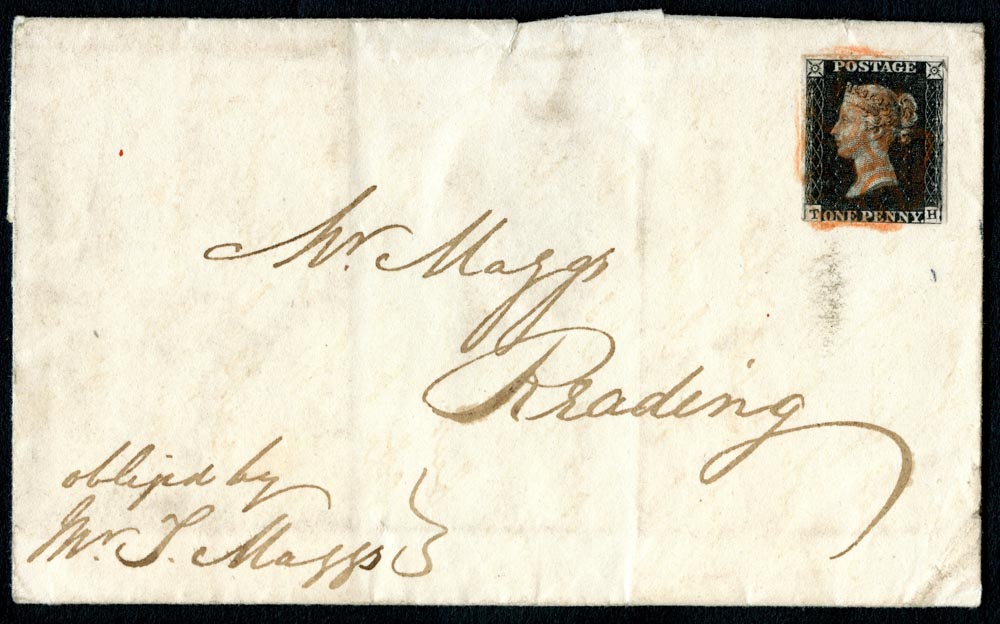 POSTAGE
T ONE PENNY H
Mr. Maggs
Reading
oblig'd by
Mr. T. Maggs